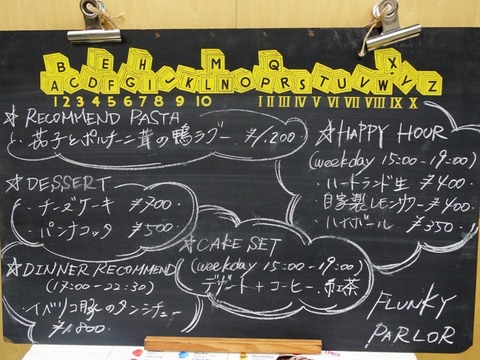 B E H M Q X
A C D F G I J K L N O P R S T U V W Y Z
1 2 3 4 5 6 7 8 9 10 I II III IV V VI VII VIII IX X
☆ RECOMMEND PASTA
・茄子とポルチーニ茸の鴨ラグー ¥1,200
☆ HAPPY HOUR
(weekday 15:00-19:00)
・ハートランド生 ¥400
・自家製レモンサワー ¥400
・ハイボール ¥350
☆ DESSERT
・チーズケーキ ¥700
・パンナコッタ ¥500
☆ CAKE SET
(weekday 15:00-19:00)
デザート + コーヒー or 紅茶
☆ DINNER RECOMMEND
(17:00-22:30)
・イベリコ豚のタンシチュー
¥1,800
FLUNKY
PARLOR